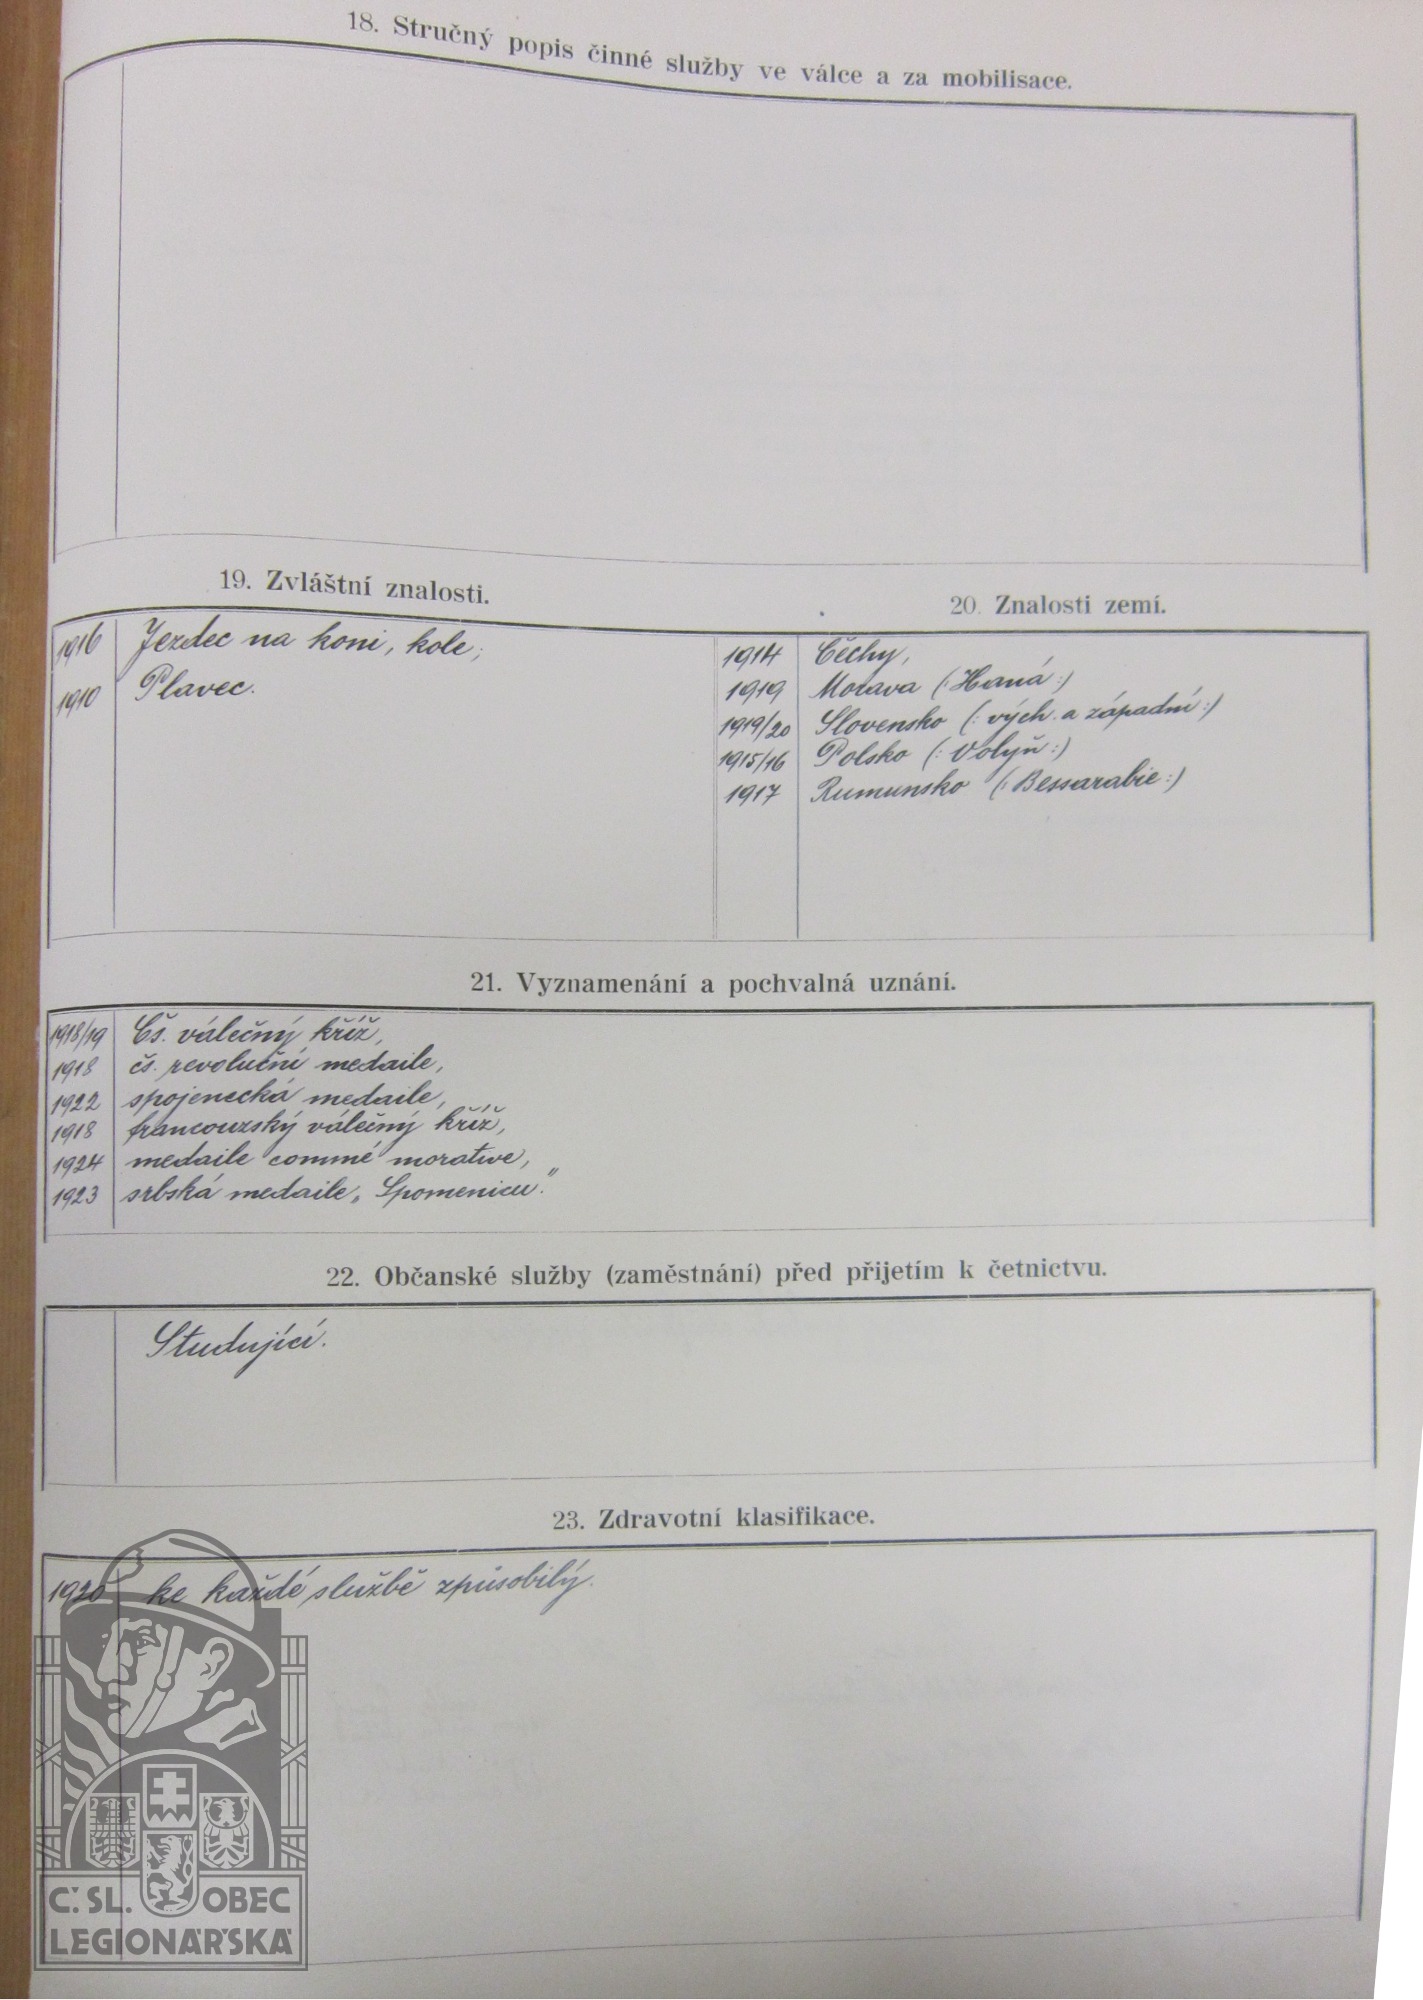 18. Stručný popis činné služby ve válce a za mobilisace.
19. Zvláštní znalosti.
1916 Jezdec na koni, kole;
1910 Plavec.
20. Znalosti zemí.
1914 Čechy,
1919 Morava (: Haná :)
1919/20 Slovensko (: vých. a západní :)
1915/16 Polsko (: Volyň :)
1917 Rumunsko (: Bessarabie :)
21. Vyznamenání a pochvalná uznání.
1918/19 Čs. válečný kříž,
1918 čs. revoluční medaile,
1922 spojenecká medaile,
1918 francouzský válečný kříž,
1924 medaile commé morative,
1923 srbská medaile „Spomenicu."
22. Občanské služby (zaměstnání) před přijetím k četnictvu.
Studující.
23. Zdravotní klasifikace.
1920 ke každé službě způsobilý.
Č. SL. OBEC
LEGIONÁŘSKÁ